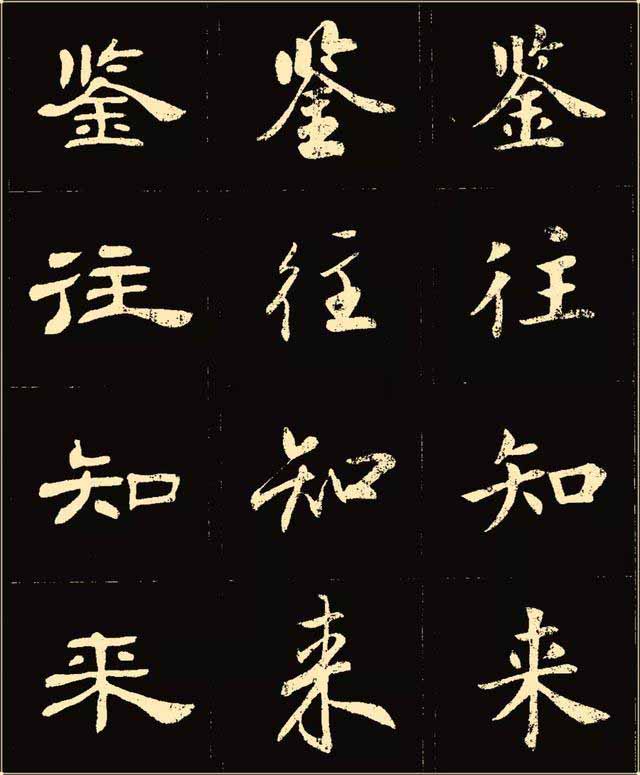 鉴鉴鉴
往往往
知知知
来来来